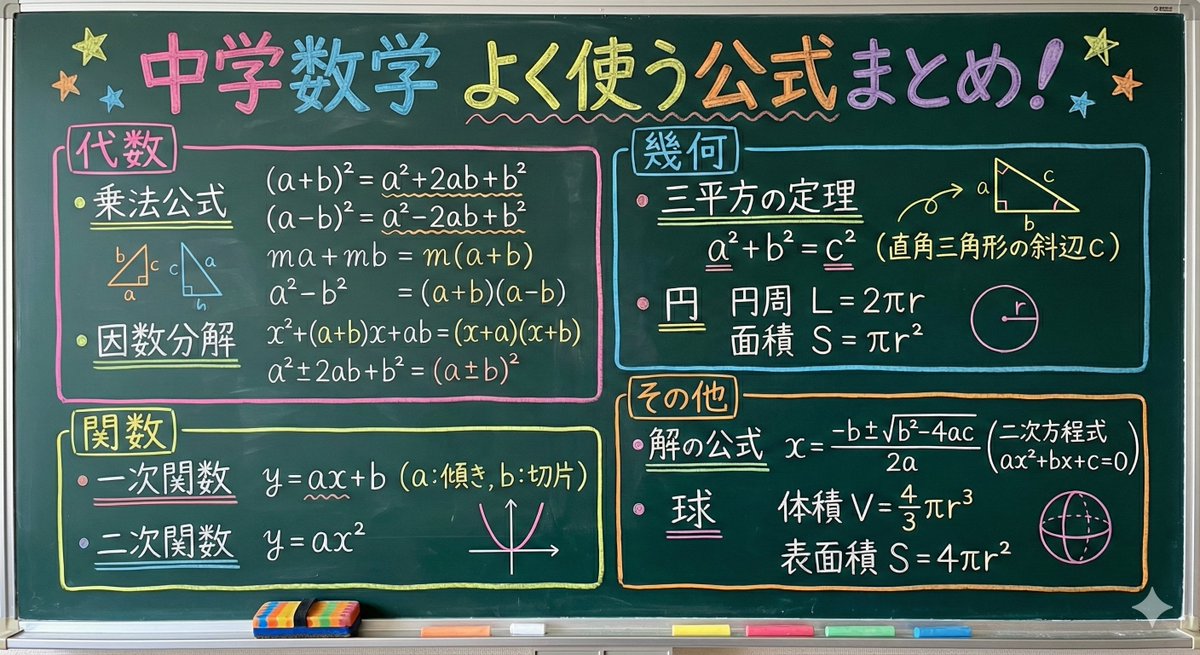 中学数学 よく使う公式まとめ!
代数
・乗法公式
(a+b)²=a²+2ab+b²
(a-b)²=a²-2ab+b²
b c a
c a
ma+mb=m(a+b)
a²-b² =(a+b)(a-b)
・因数分解
x²+(a+b)x+ab=(x+a)(x+b)
a²±2ab+b²=(a±b)²
関数
・一次関数 y=ax+b (a:傾き, b:切片)
・二次関数 y=ax²
幾何
・三平方の定理
a c b
a²+b²=c² (直角三角形の斜辺c)
・円 円周 L=2πr
面積 S=πr²
r
その他
・解の公式 x=(-b±√b²-4ac)/2a (二次方程式
ax²+bx+c=0)
・球 体積 V=4/3πr³
表面積 S=4πr²